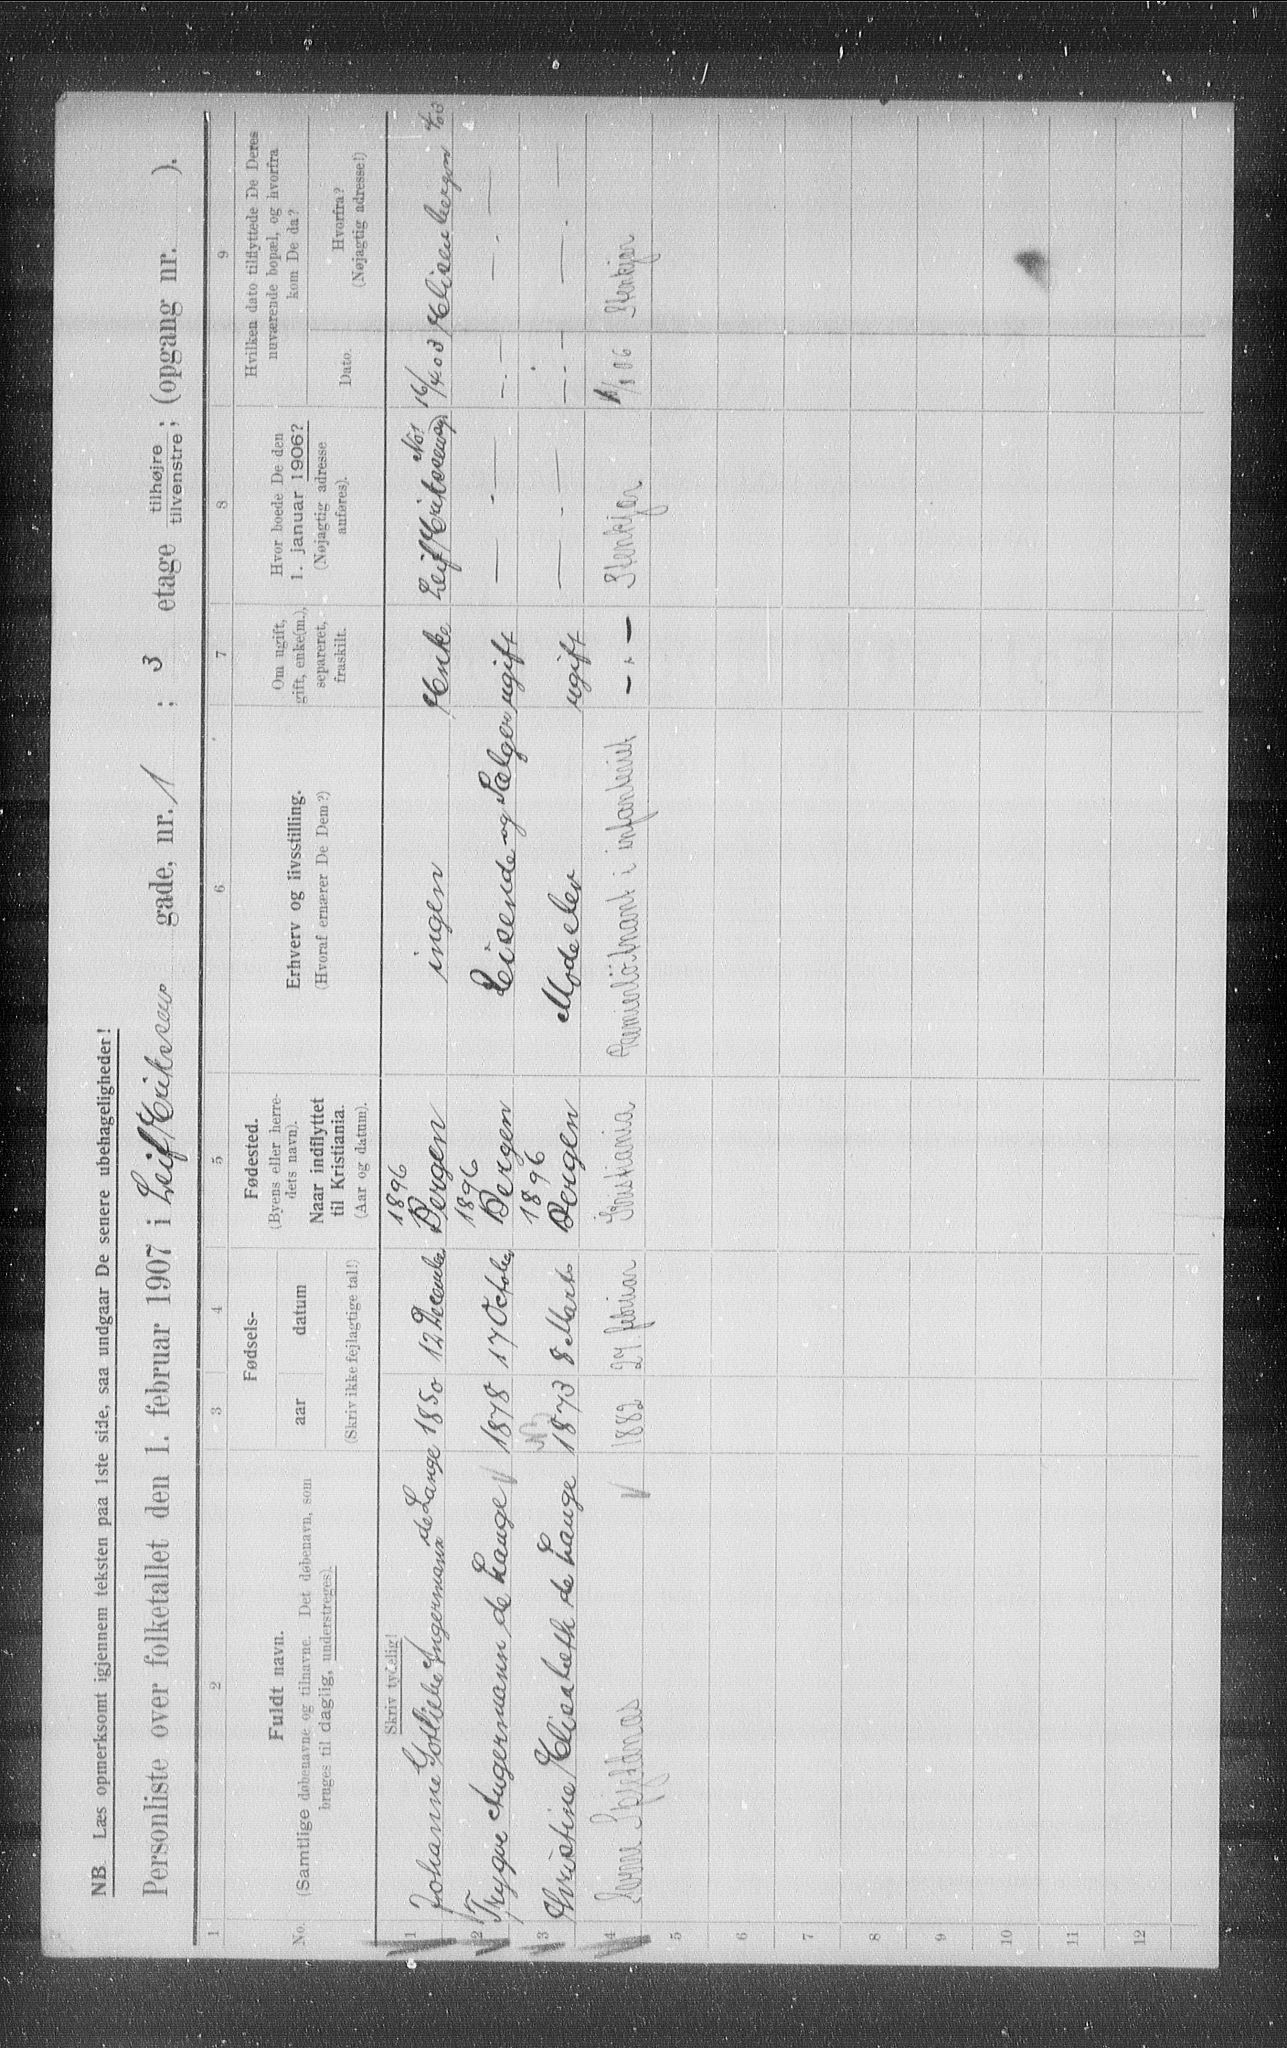 NB. Læs opmerksomt igjennem teksten paa 1ste side, saa undgaar De senere ubehageligheder!
Personliste over folketallet den 1. februar 1907 i Leif Eriksens gade, nr. 1 ; 3 etage tilhøjre ; tilvenstre ; (opgang nr. ).
1 2 3 4 5 6 7 8 9
No.
Fuldt navn.
(Samtlige døbenavne og tilnavne. Det døbenavn, som
bruges til daglig, understreges).
Fødsels-
aar datum
(Skriv ikke fejlagtige tal!)
Fødested.
(Byens eller herre-
dets navn).
Naar indflyttet
til Kristiania.
(Aar og datum).
Erhverv og livsstilling.
(Hvoraf ernærer De Dem?)
Om ugift,
gift, enke(m.),
separeret,
fraskilt.
Hvor boede De den
1. januar 1906?
(Nøjagtig adresse
anføres).
Hvilken dato tilflyttede De Deres
nuværende bopæl, og hvorfra
kom De da?
Dato.
Hvorfra?
(Nøjagtig adresse!)
Skriv tydelig!
1 Johanne Gotliebe Angermann de Lange 1850 12 December 1896 Bergen ingen Enke Leif Eriksensvej No 1 16/4 03
2 Trygve Angermann de Lange 1878 17 October 1896 Bergen Reisende og Sælger ugift — . — — . — — . —
3 Christine Elisabeth de Lange 1873 8 Marts 1896 Bergen Modeeler ugift — . — — . — — . —
4 Sverre Spjeldnæs 1882 27 februar Kristiania Premierlöitnant i infanteriet — " — Stenkjær /8 06 Stenkjær
5
6
7
8
9
10
11
12